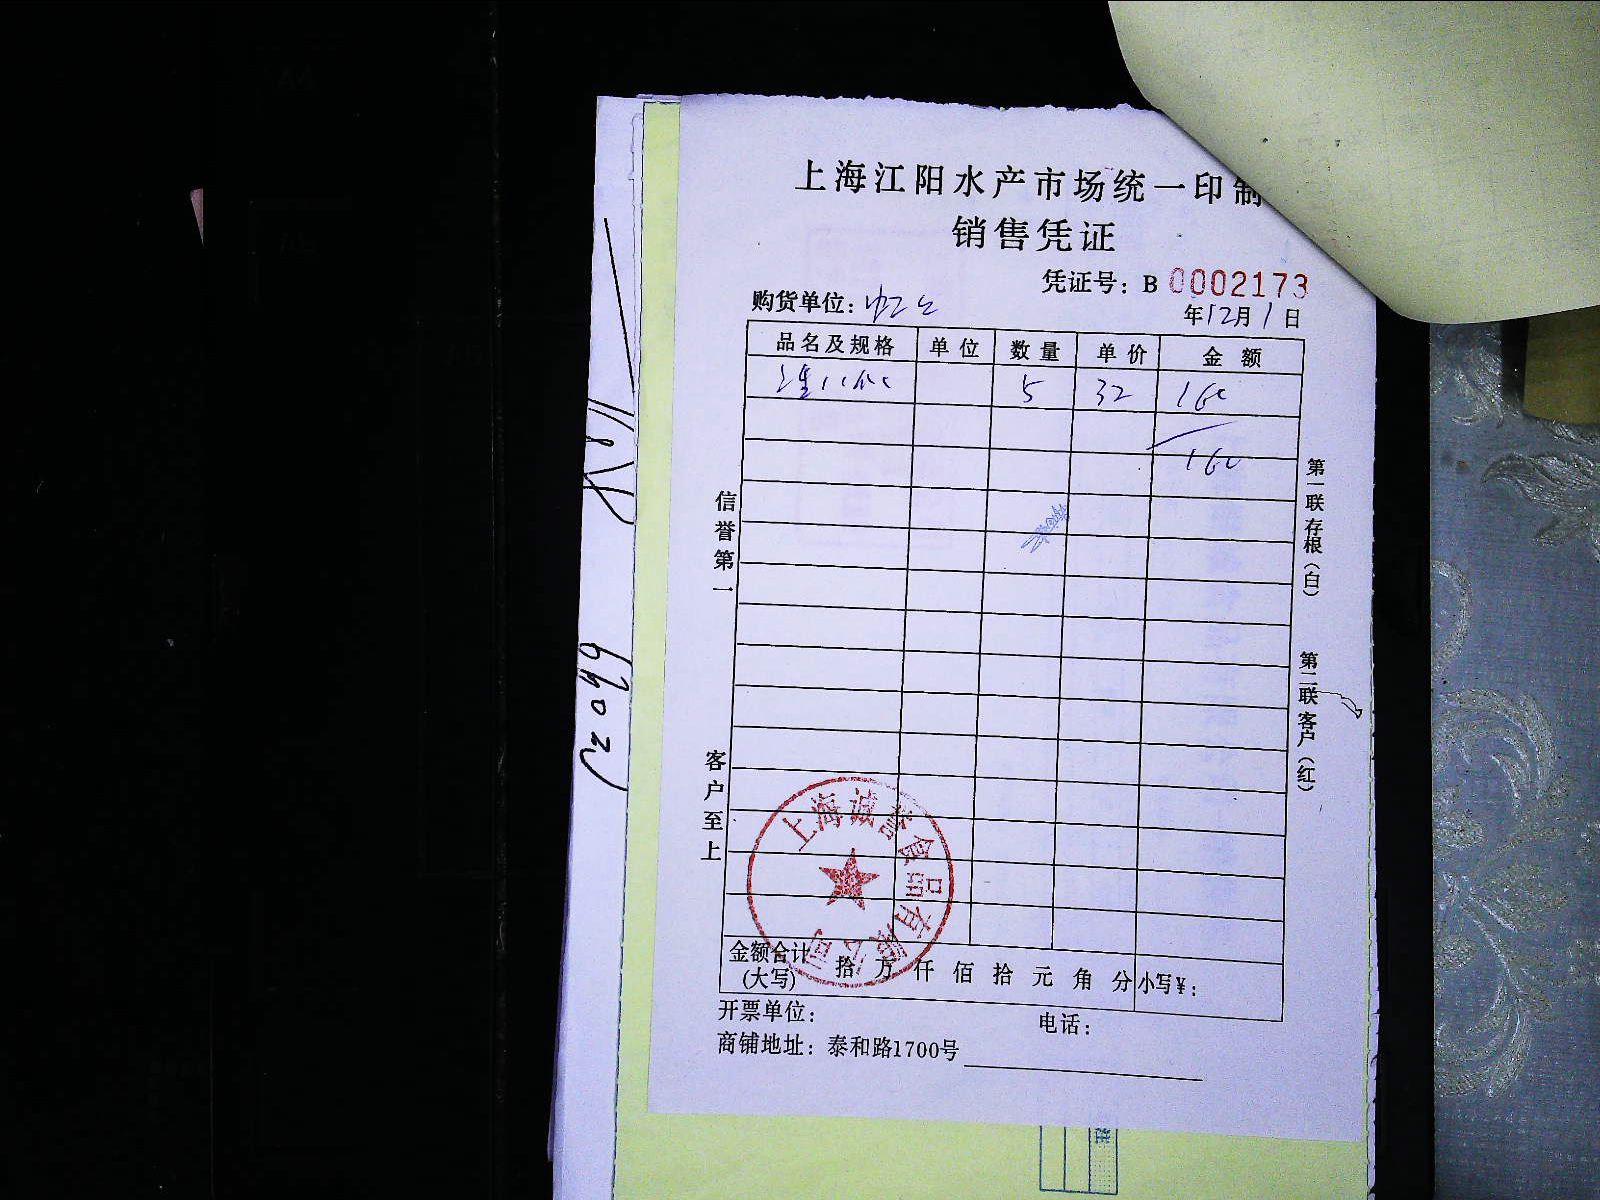 上海江阳水产市场统一印制
销售凭证
凭证号：B 0002173
购货单位：
年12月1日
品名及规格 单位 数量 单价 金额
5 32 160
160
信誉第一
客户至上
第一联存根（白）
第二联客户（红）
上海诚誉食品有限公司
金额合计（大写） 拾 万 仟 佰 拾 元 角 分 小写¥：
开票单位： 电话：
商铺地址：泰和路1700号